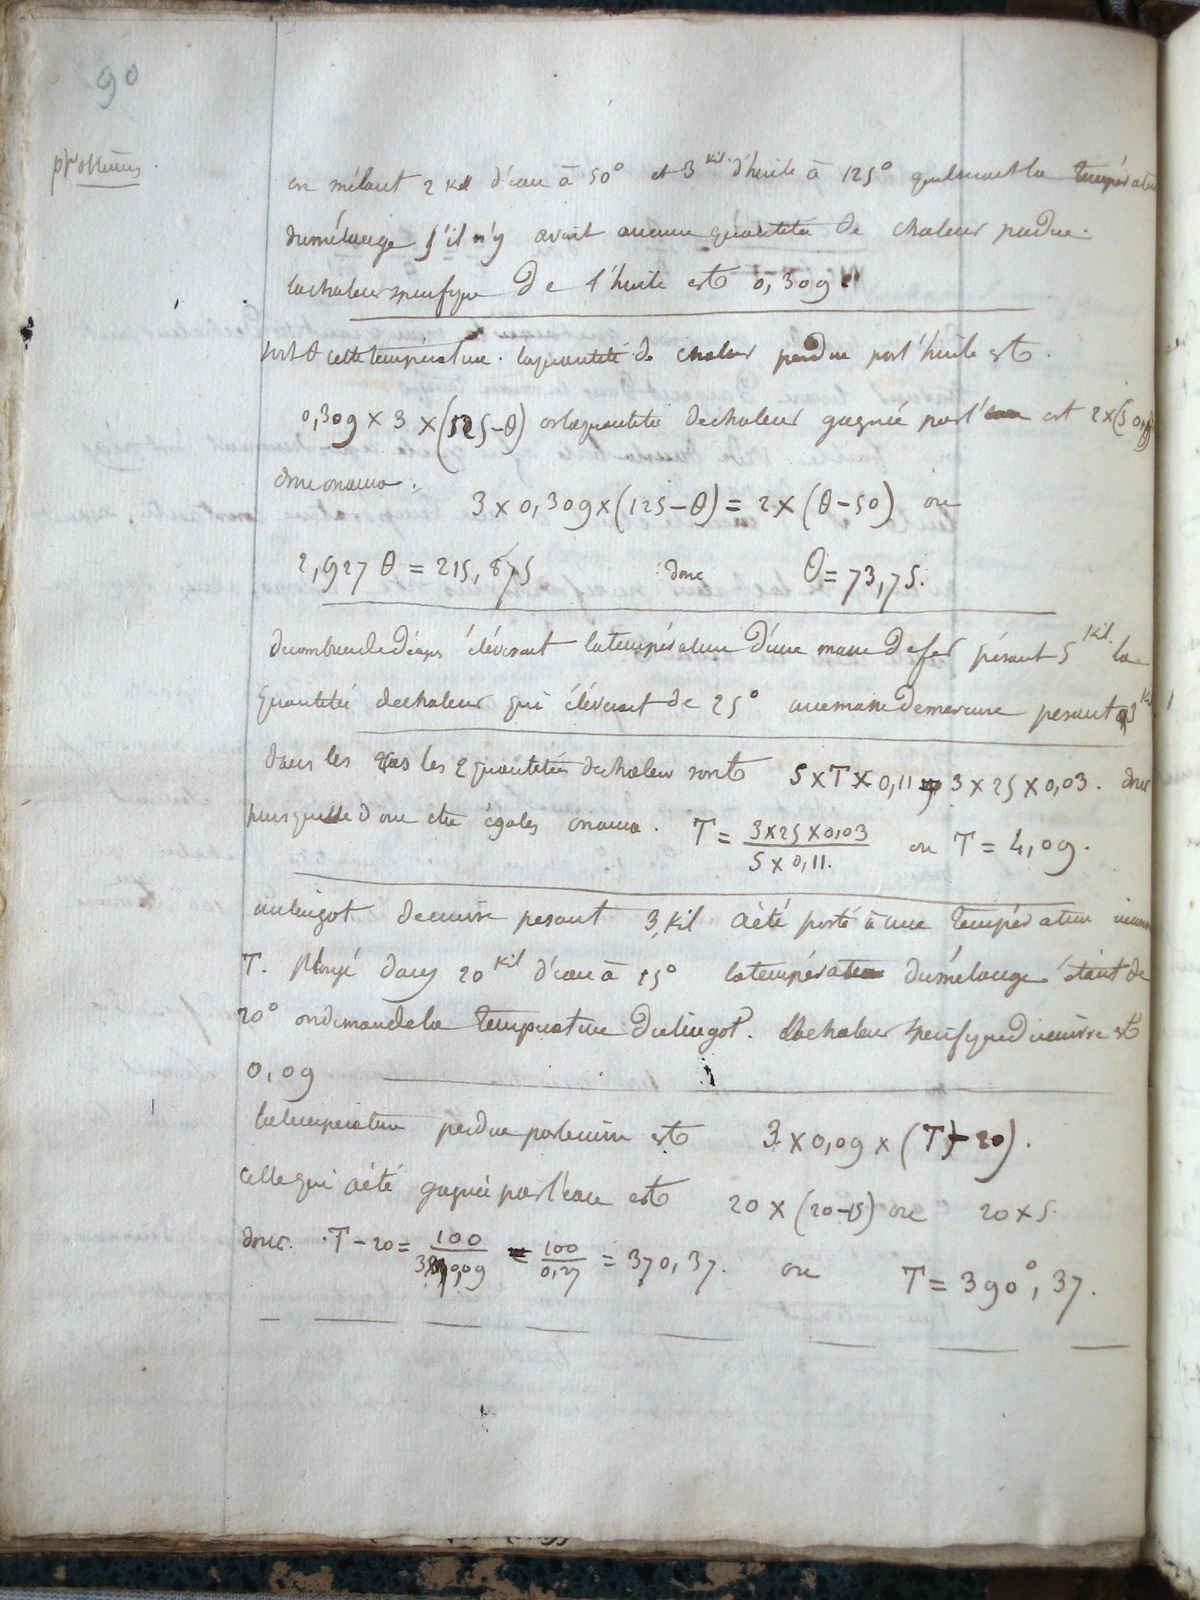 90
problèmes.
on mêlant 2 kil d'eau à 50° et 3 kil. d'huile à 125° quel serait la températu
du mélange s'il n'y avait aucune quantité de chaleur perdue.
la chaleur specifique de l'huile est 0,309.
soit θ cette température. la quantité de chaleur perdue par l'huile est.
0,309 × 3 × (125-θ) or la quantité de chaleur gagnée par l'eau est 2×(50
donc on aura.
3 × 0,309 × (125-θ) = 2 × (θ-50) ou
2,927 θ = 215,875 donc θ = 73,75.
de combien de degrés élèverait la température d'une masse de fer pésant 5 kil. la
quantité de chaleur qui élèverait de 25° une masse de mercure pesant 3 k
dans les cas les 2 quantités de chaleur sont 5 × T × 0,11 3 × 25 × 0,03. donc
puisque elle être égales on aura. T = 3×25×0,03 / 5 × 0,11. ou T = 4,09.
un lingot de cuivre pesant 3 kil a été porté à une température
T. plongé dans 20 kil d'eau à 15° la température du mélange étant de
20° on demande la température du lingot. la chaleur specifique du cuivre est
0,09
la température perdue par le cuivre est 3 × 0,09 × (T - 20).
celle qui a été gagnée par l'eau est 20 × (20-15) ou 20 × 5
donc. T - 20 = 100 / 3×0,09 = 100 / 0,27 = 370,37. ou T = 390°, 37.